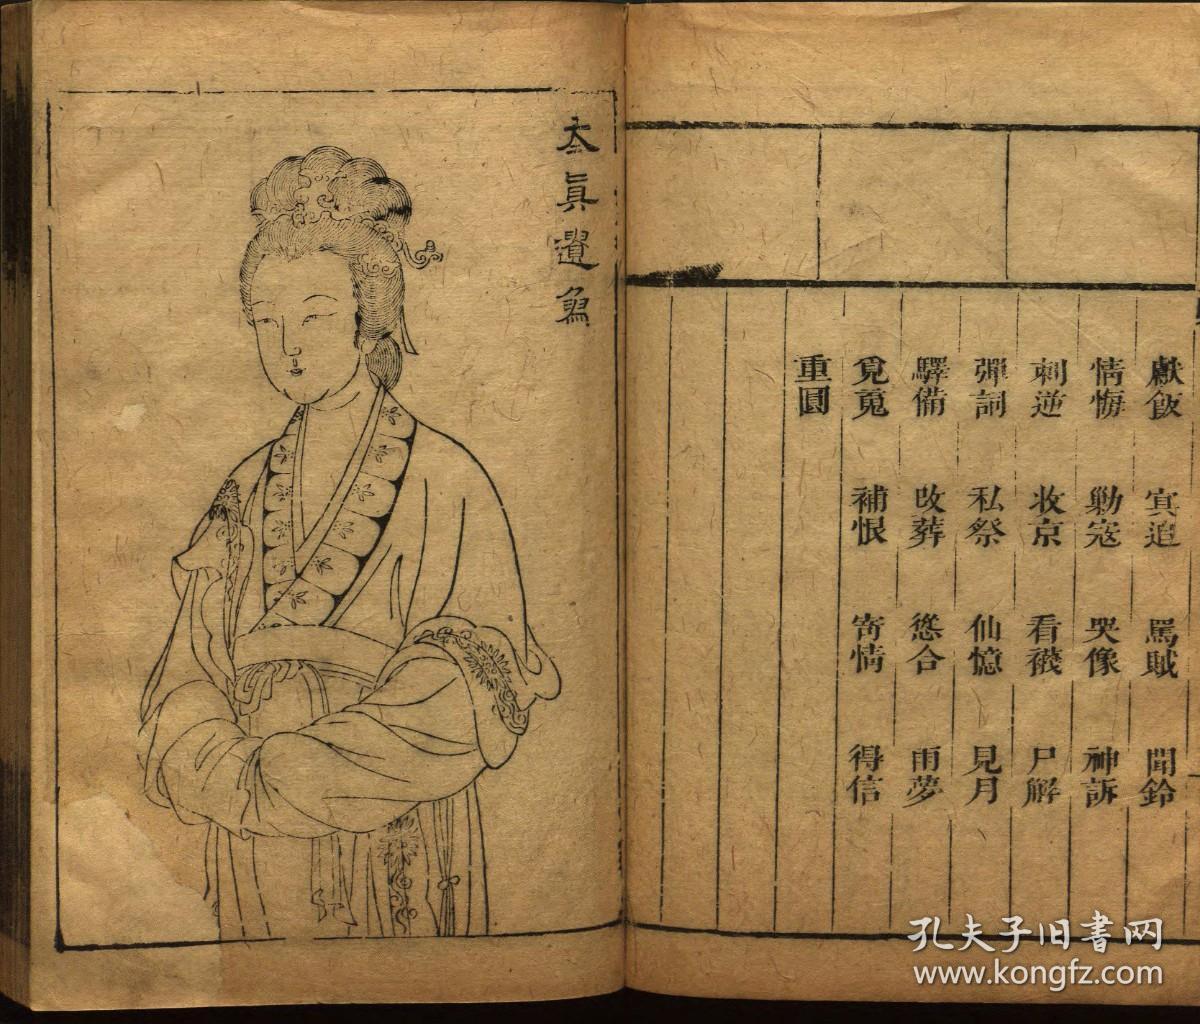 獻飯 冥追 罵賊 聞鈴
情悔 勦寇 哭像 神訴
刺逆 收京 看襪 尸解
彈詞 私祭 仙憶 見月
驛備 改葬 慫合 雨夢
覓䰟 補恨 寄情 得信
重圓
太眞遺
孔夫子旧書网
www.kongfz.com